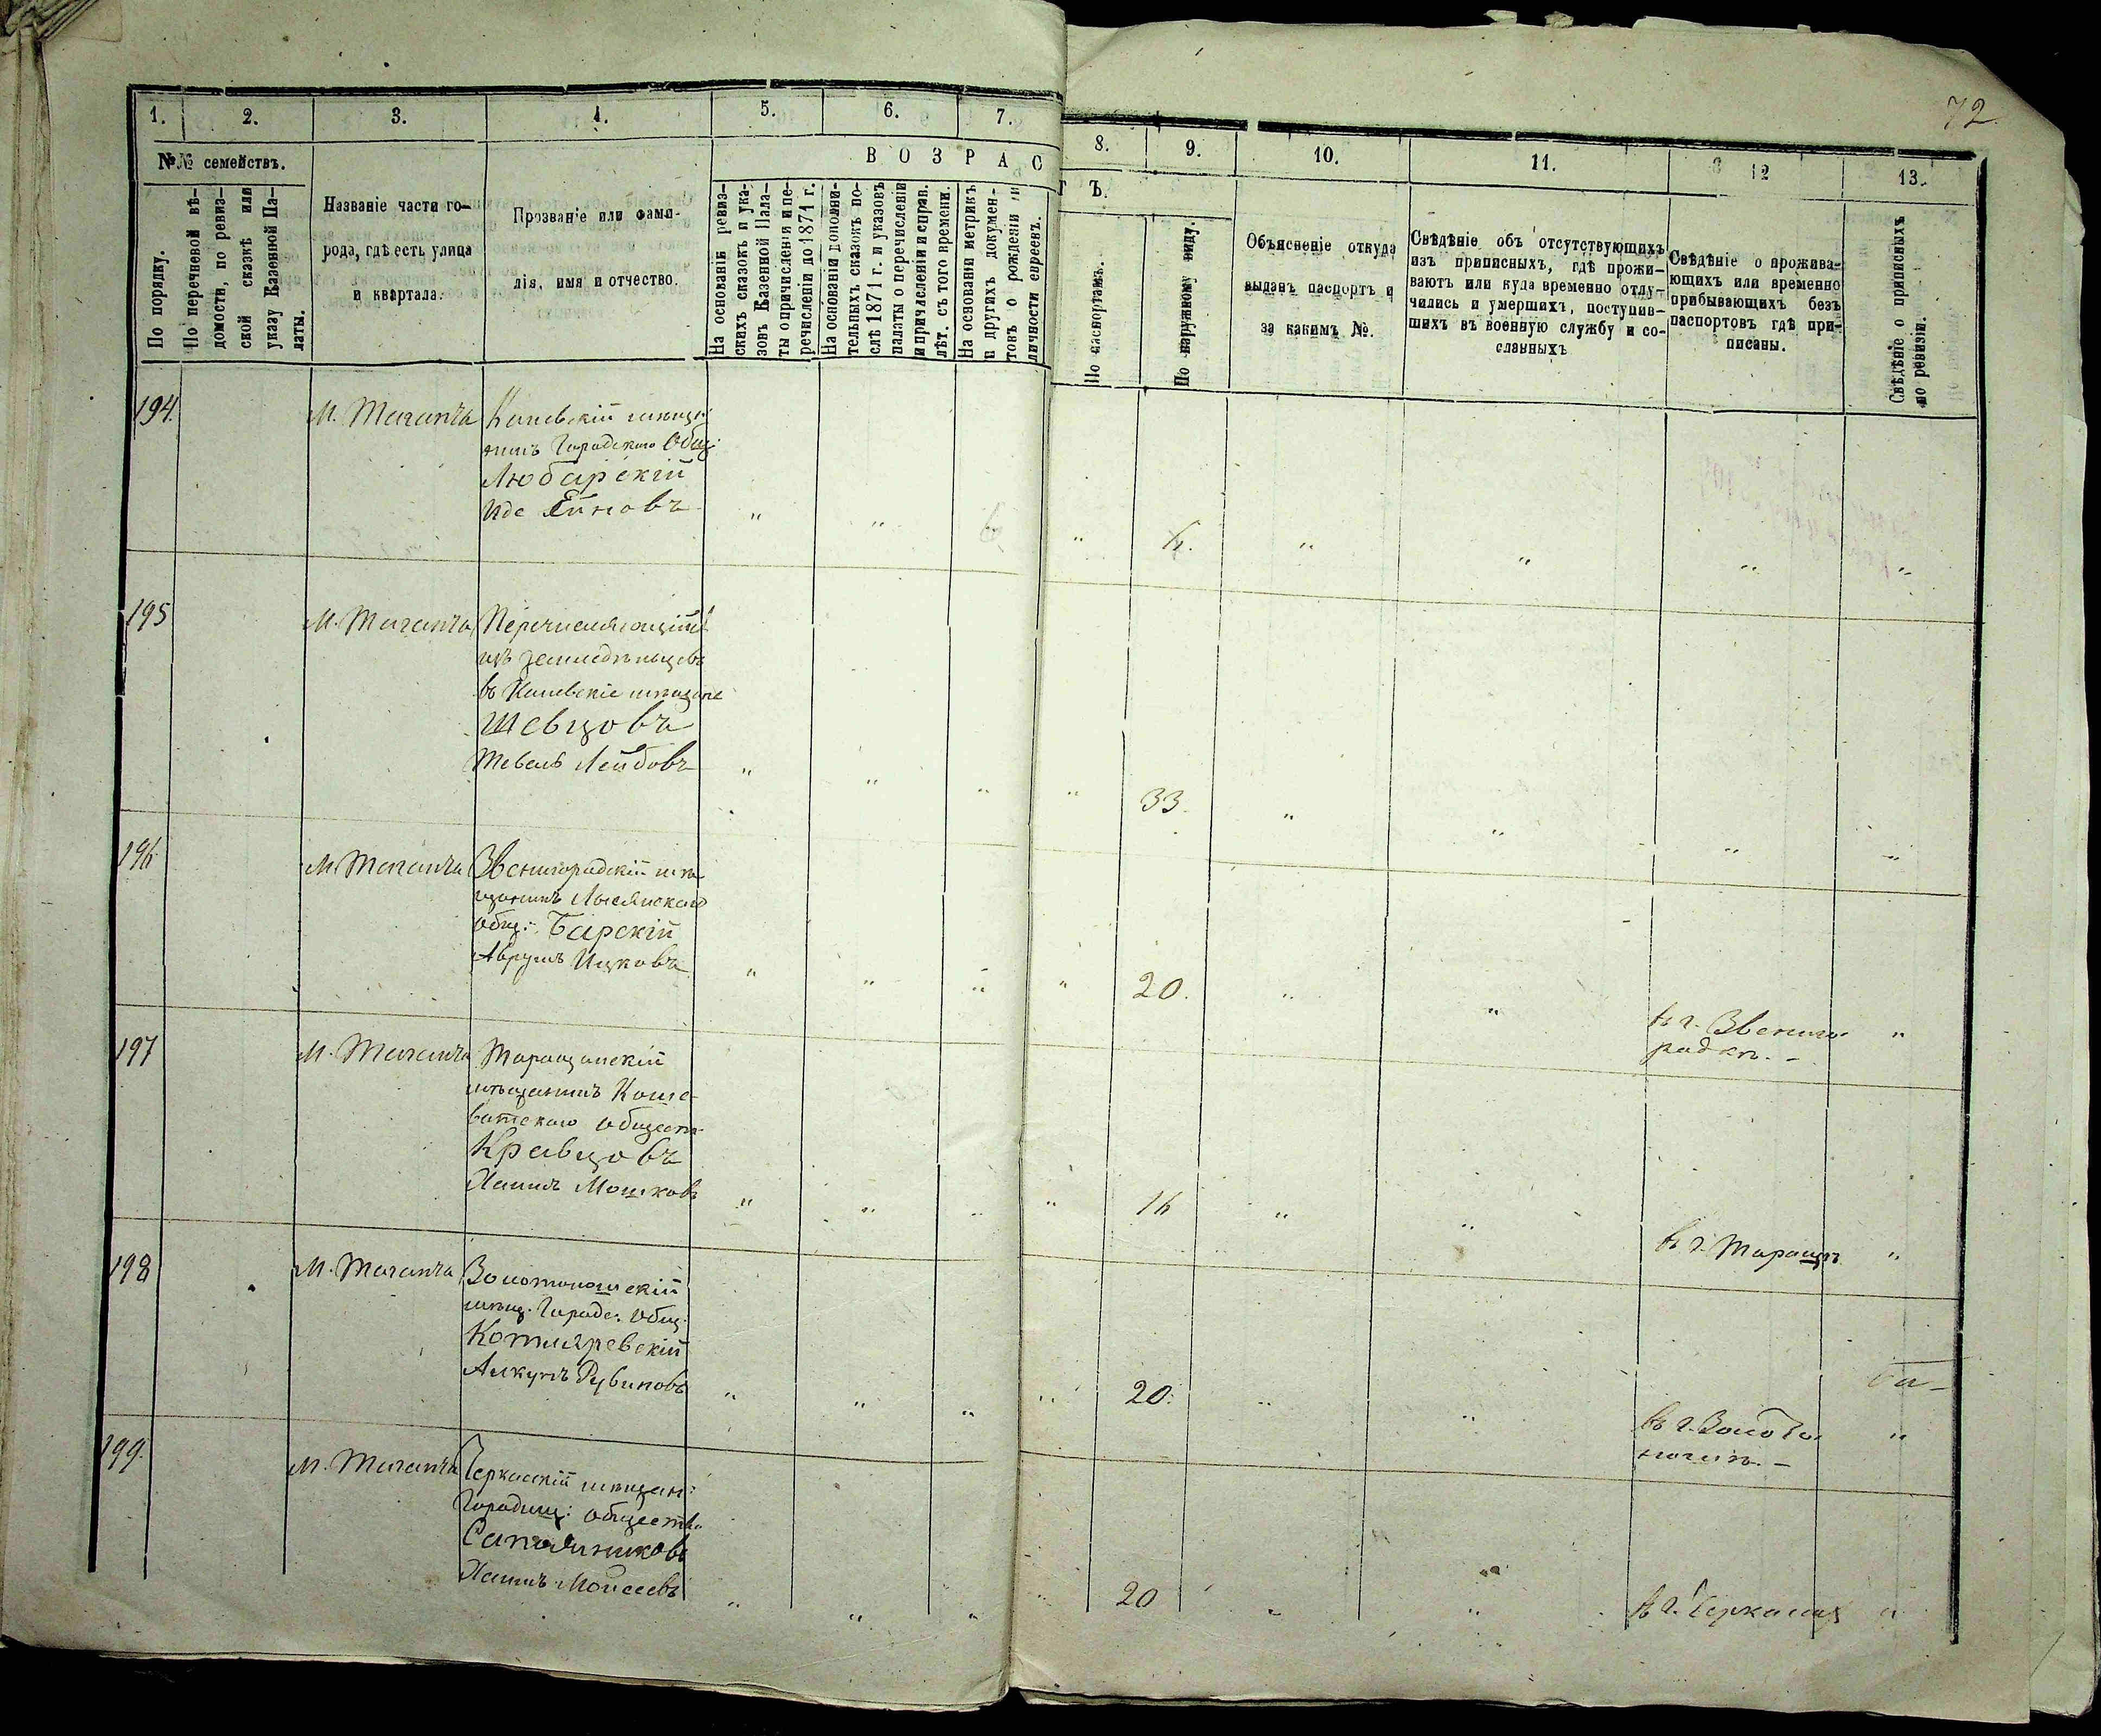 72
1. 2. 3. 4. 5. 6. 7. 8. 9. 10. 11. 12 13.
№№ семействъ.
По порядку.
По перечневой вѣ-
домости, по ревиз-
ской сказкѣ или
указу Казенной Па-
латы.
Названіе части го-
рода, гдѣ есть улица
и квартала.
Прозваніе или фами-
лія, имя и отчество.
ВОЗРАСТЪ.
На основаніи ревиз-
скихъ сказокъ и ука-
зовъ Казенной Пала-
ты о причисленіи и пе-
речисленіи до 1871 г.
На основаніи дополни-
тельныхъ сказокъ по-
слѣ 1871 г. и указовъ
палаты о перечисленіи
и причисленіи и справ.
лѣт. съ того времени.
На основаніи метрикъ
и другихъ докумен-
товъ о рожденіи и
личности евреевъ.
По паспортамъ.
По наружному виду.
Объясненіе откуда
выданъ паспортъ и
за какимъ №.
Свѣдѣніе объ отсутствующихъ
изъ приписныхъ, гдѣ прожи-
ваютъ или куда временно отлу-
чились и умершихъ, поступив-
шихъ въ военную службу и со-
сланныхъ
Свѣдѣніе о прожива-
ющихъ или временно
прибывающихъ безъ
паспортовъ гдѣ при-
писаны.
Свѣдѣніе о приписныхъ
по ревизіи.
194. М. Таганча Каневскій мѣща-
нинъ Городскаго Общ:
Любарскій
" " " " " " " "
195 М. Таганча Перечисляющійся
изъ земледѣльцевъ
въ Каневскіе мѣщане
Шевцовъ
Тевель Лейбовъ " " " " 33. " " " "
196 М. Таганча Звенигородскій мѣ
щанинъ Лысянскаго
общ: Барскій
Аврумъ Ицковъ " " " " 20. " " въ г. Звениго- "
родкѣ. -
197 М. Таганча Таращанскій
мѣщанинъ Коше-
ватскаго обществ
Кравцовъ
Хаимъ Мошковъ " " " " 16 " " въ г. Таращѣ "
198 М. Таганча Золотоношскій
мѣщ. Городс. Общ:
Котляревскій
Алкунъ Рувиновъ " " " " 20. " " въ г. Золото- "
ношѣ. -
199. М. Таганча Черкасскій мѣщан:
Городищ: общества
Хаимъ Мойсеевъ " " " " 20 " " въ г. Черкасах "